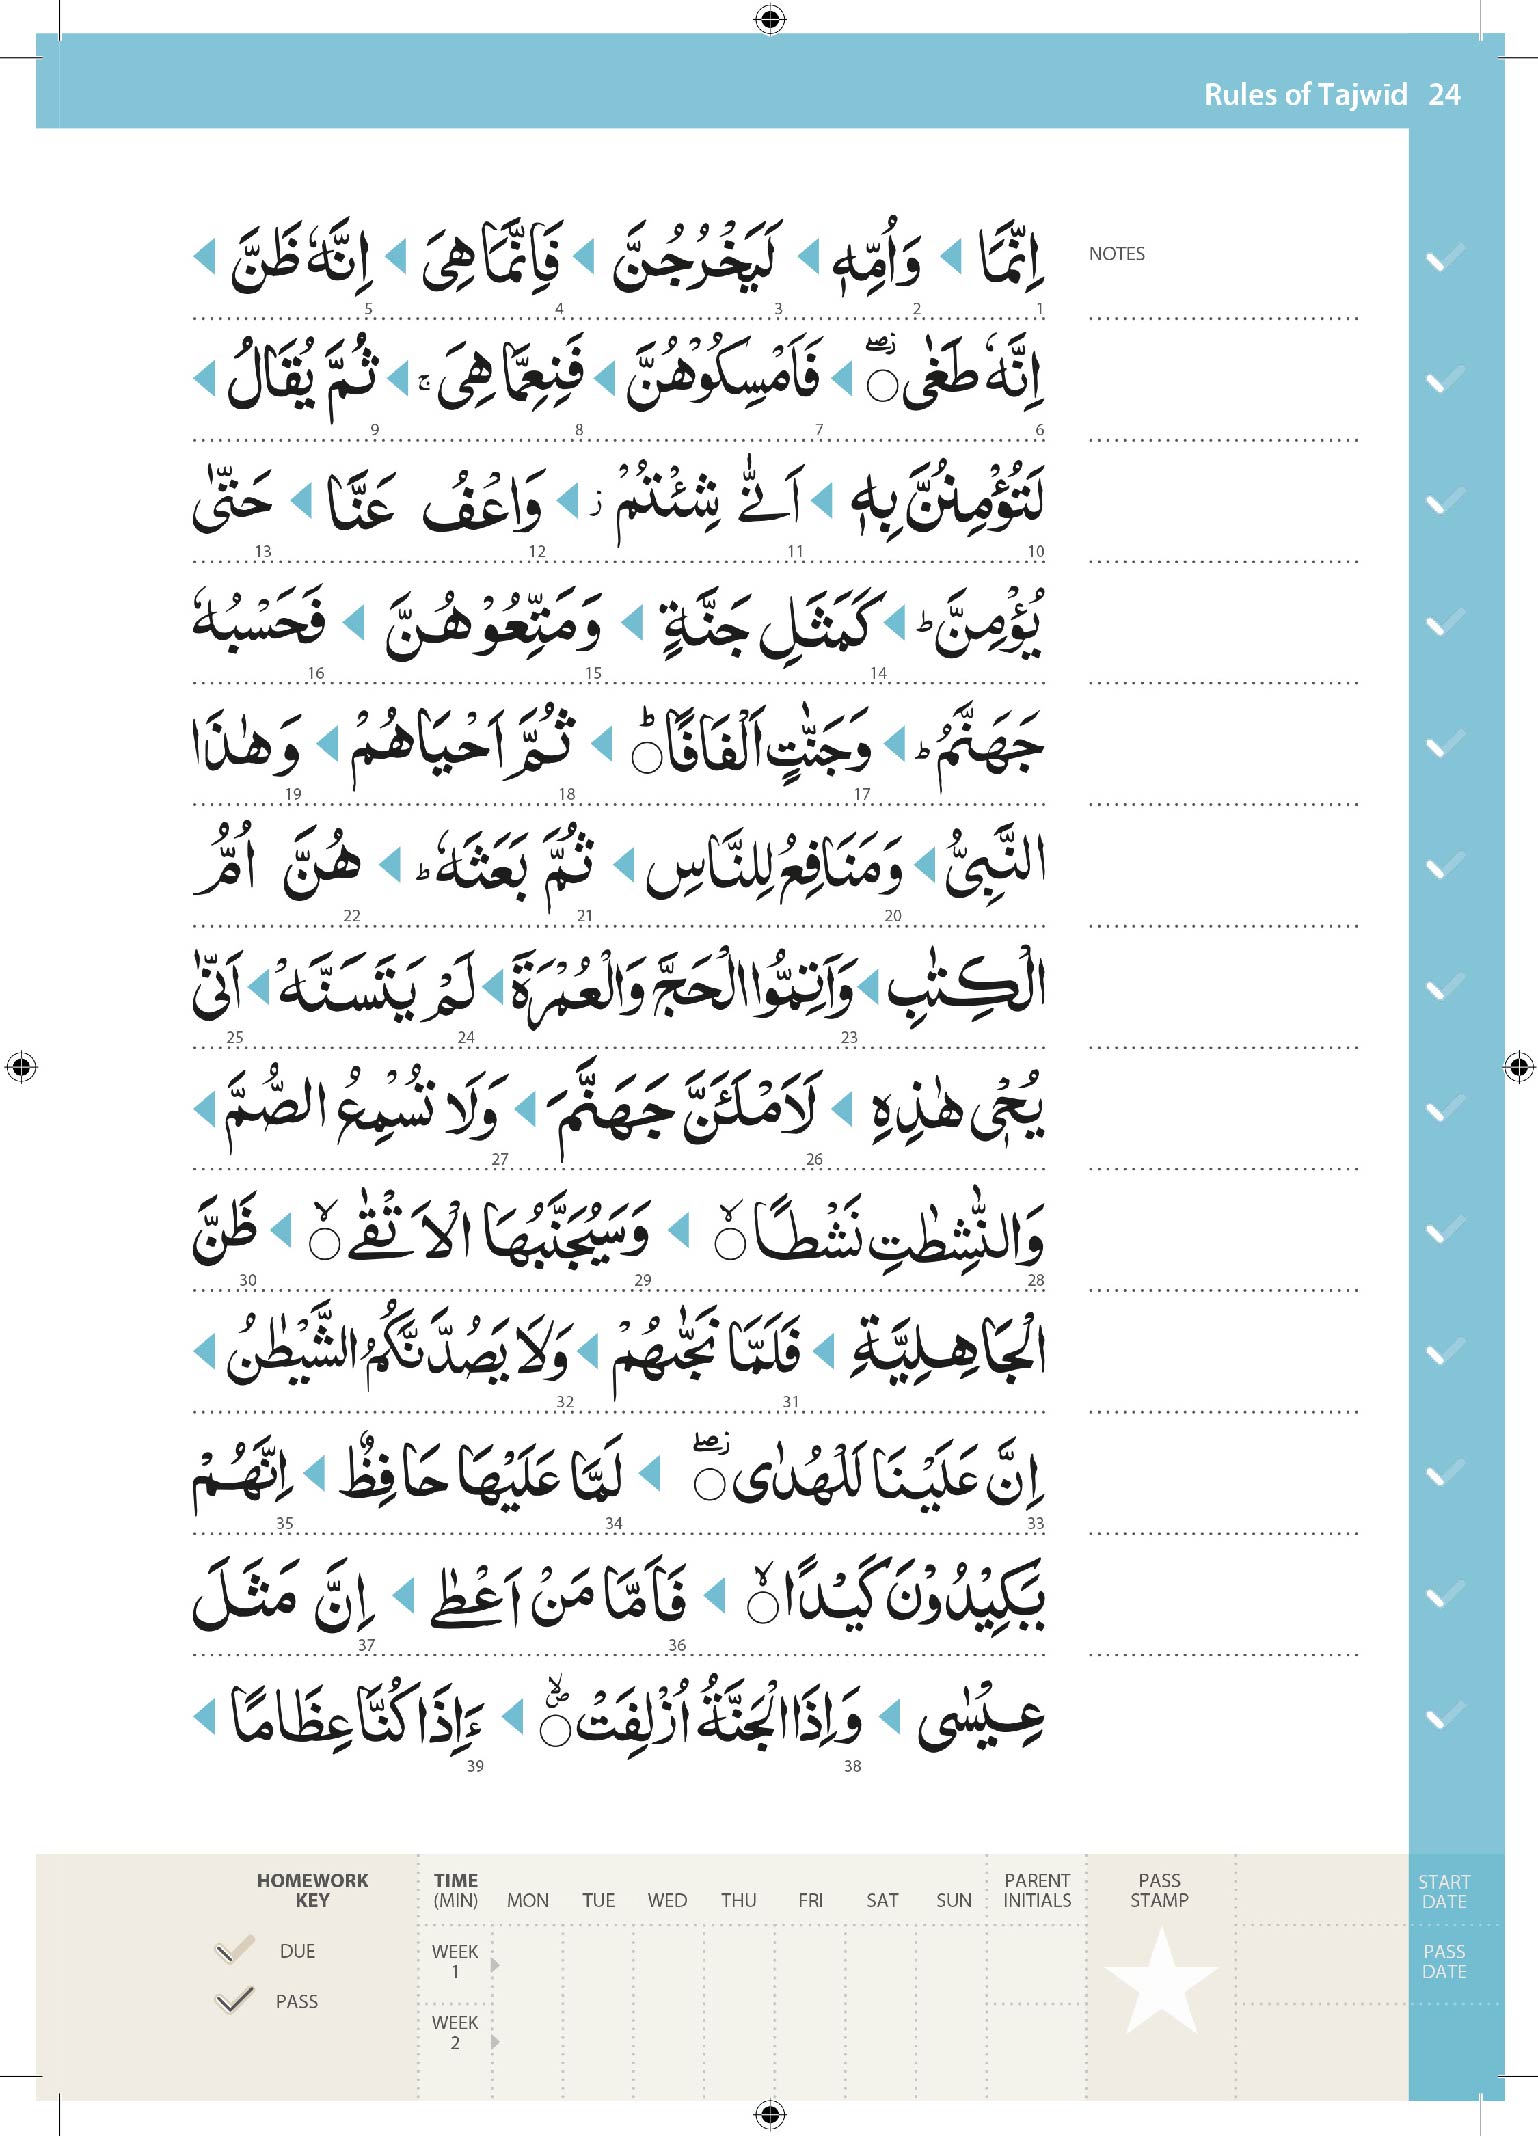 Rules of Tajwīd 24
NOTES
اِنَّمَا ◀ وَاُمِّهٖ ◀ لَيَخْرُجُنَّ ◀ فَاِنَّمَا هِىَ ◀ اِنَّهٗ ظَنَّ ◀
1 2 3 4 5
اِنَّهٗ طَغٰى ۝ زصلے ◀ فَاَمْسِكُوْهُنَّ ◀ فَنِعِمَّا هِىَ ج ◀ ثُمَّ يُقَالُ ◀
6 7 8 9
لَتُؤْمِنُنَّ بِهٖ ◀ اَنّٰى شِئْتُمْ ز ◀ وَاعْفُ عَنَّا ◀ حَتّٰى
10 11 12 13
يُؤْمِنَّ ط ◀ كَمَثَلِ جَنَّةٍ ◀ وَمَتِّعُوْهُنَّ ◀ فَحَسْبُهٗ
14 15 16
جَهَنَّمُ ط ◀ وَجَنّٰتٍ اَلْفَافًا ۝ ط ◀ ثُمَّ اَحْيَاهُمْ ◀ وَهٰذَا
17 18 19
النَّبِىُّ ◀ وَمَنَافِعُ لِلنَّاسِ ◀ ثُمَّ بَعَثَهٗ ط ◀ هُنَّ اُمُّ
20 21 22
الْكِتٰبِ ◀ وَاَتِمُّوا الْحَجَّ وَالْعُمْرَةَ ◀ لَمْ يَتَسَنَّهْ ◀ اَنّٰى
23 24 25
يُحْىٖ هٰذِهِ ◀ لَاَمْلَـَٔنَّ جَهَنَّمَ ◀ وَلَا تُسْمِعُ الصُّمَّ ◀
26 27
وَالنّٰشِطٰتِ نَشْطًا ۝ لا ◀ وَسَيُجَنَّبُهَا الْاَتْقَى ۝ لا ◀ ظَنَّ
28 29 30
الْجَاهِلِيَّةِ ◀ فَلَمَّا نَجّٰىهُمْ ◀ وَلَا يَصُدَّنَّكُمُ الشَّيْطٰنُ ◀
31 32
اِنَّ عَلَيْنَا لَلْهُدٰى ۝ زصلے ◀ لَمَّا عَلَيْهَا حَافِظٌ ◀ اِنَّهُمْ
33 34 35
يَكِيْدُوْنَ كَيْدًا ۝ لا ◀ فَاَمَّا مَنْ اَعْطٰى ◀ اِنَّ مَثَلَ
36 37
عِيْسٰى ◀ وَاِذَا الْجَنَّةُ اُزْلِفَتْ ۝ لاص ◀ ءَاِذَا كُنَّا عِظَامًا ◀
38 39
HOMEWORK KEY
DUE
PASS
TIME (MIN) MON TUE WED THU FRI SAT SUN PARENT INITIALS PASS STAMP START DATE
WEEK 1
PASS DATE
WEEK 2